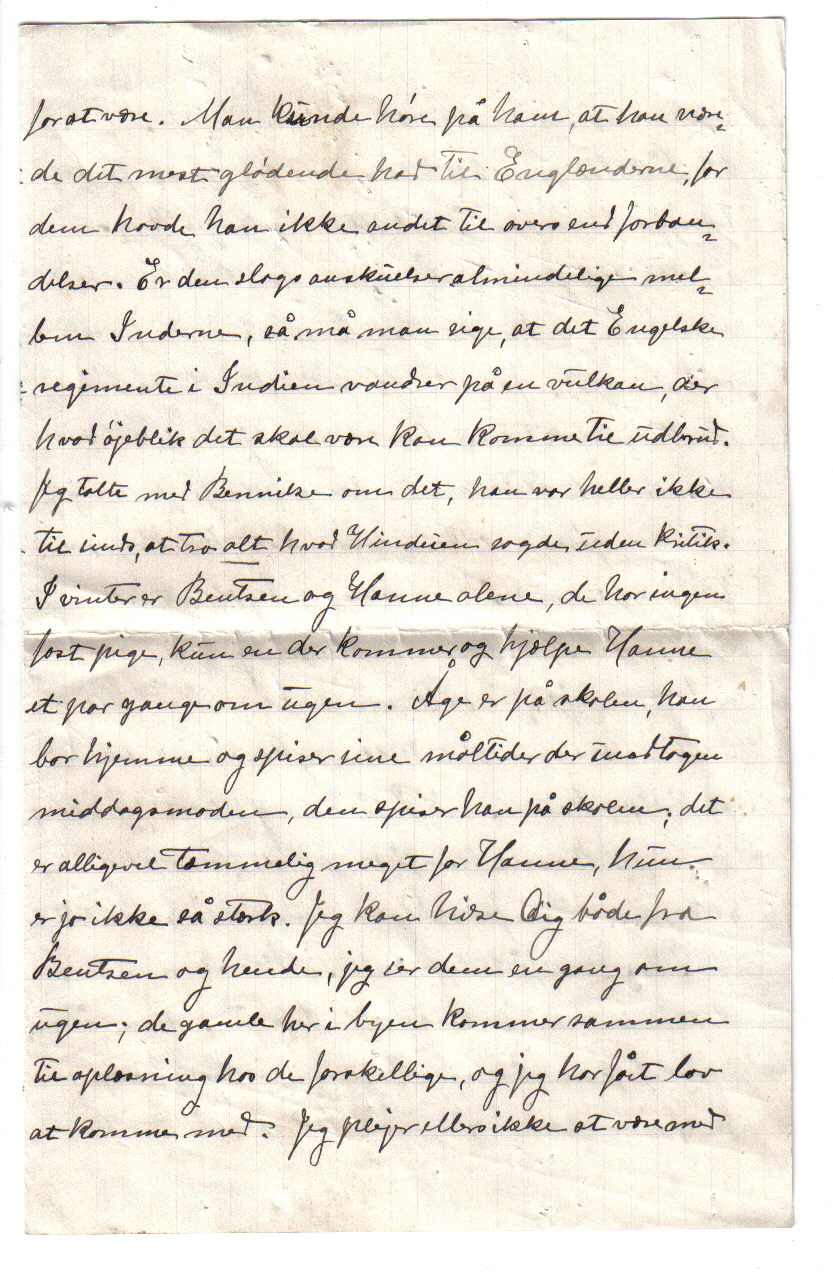 for at være. Man kunde høre på ham, at han nære-
de det mest glødende had til Englænderne, for
dem havde han ikke andet til overs end forban-
delser. Er den slags anskuelser almindelige mel-
lem Inderne, så må man sige, at det Engelske
regimente i Indien vandrer på en vulkan, der
hvad øjeblik det skal være kan komme til udbrud.
Jeg talte med Bennike om det, han var heller ikke
til sinds, at tro alt hvad Hinduen sagde uden kritik.
I vinter er Bentsen og Hanne alene, de har ingen
fast pige, kun en der kommer og hjælpe Hanne
et par gange om ugen. Åge er på skolen, han
bor hjemme og spiser sine måltider der undtagen
middagsmaden, den spiser han på skolen; det
er alligevel temmelig meget for Hanne, hun
er jo ikke så stærk. Jeg kan hilse Dig både fra
Bentsen og hende, jeg ser dem en gang om
ugen; de gamle her i byen kommer sammen
til oplæsning hos de forskellige, og jeg har fået lov
at komme med. Jeg plejer ellers ikke at være med